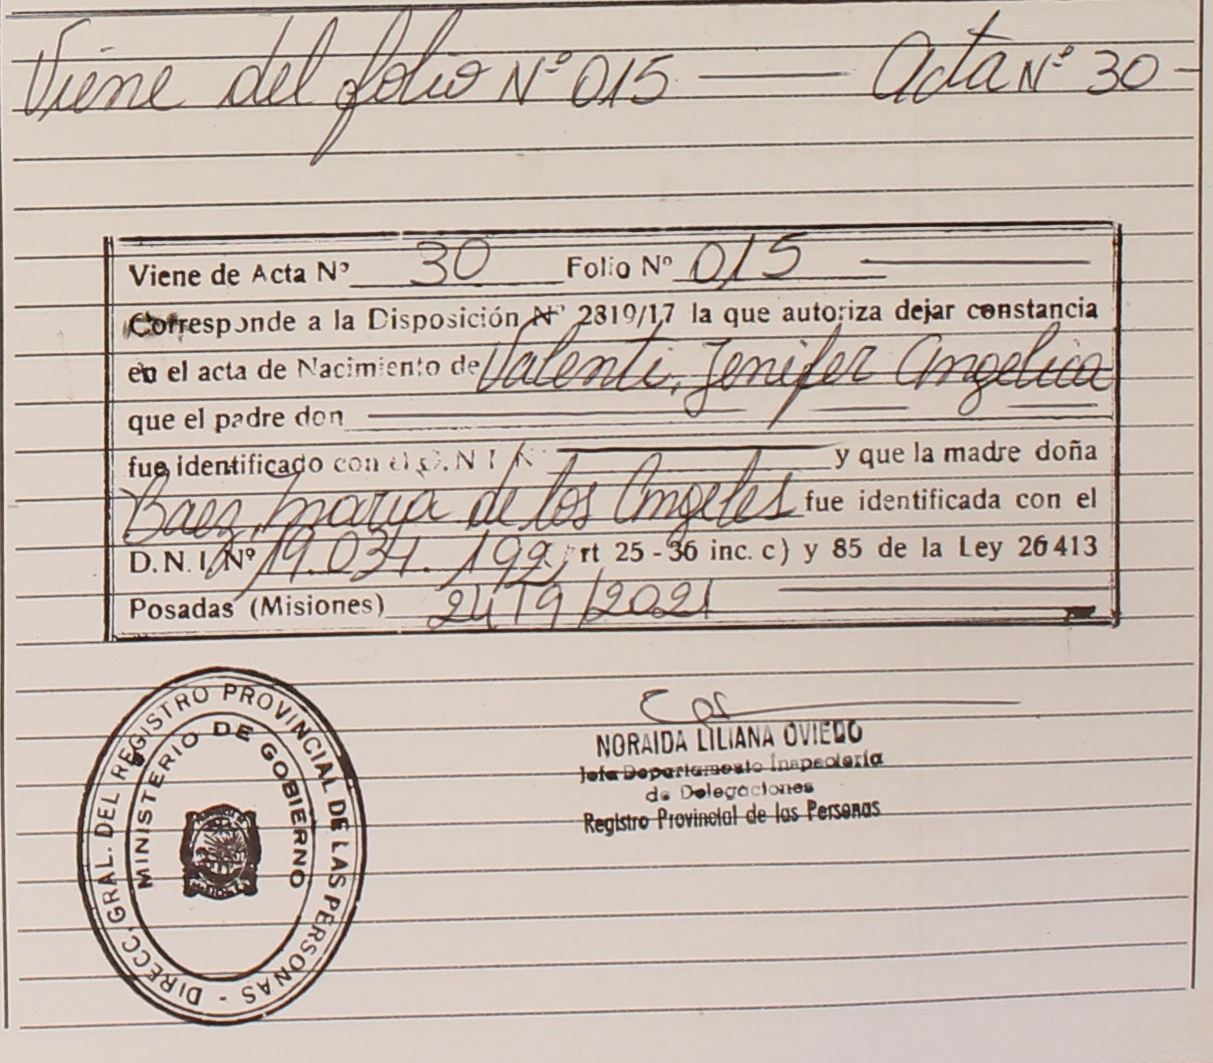 Viene del folio Nº 015 — Acta Nº 30 -
Viene de Acta Nº 30 Folio Nº 015
Corresponde a la Disposición Nº 2819/17 la que autoriza dejar constancia
en el acta de Nacimiento de Valenti, Jenifer Angelica
que el padre don
fue identificado con el D.N.I Nº y que la madre doña
Baez, Maria de los Angeles fue identificada con el
D.N.I. Nº 19.034.199, rt 25 - 36 inc. c) y 85 de la Ley 26413
Posadas (Misiones) 24/9/2021
DIRECC. GRAL. DEL REGISTRO PROVINCIAL DE LAS PERSONAS -
MINISTERIO DE GOBIERNO
NORAIDA LILIANA OVIEDO
Jefa Departamento Inspectoría
de Delegaciones
Registro Provincial de las Personas